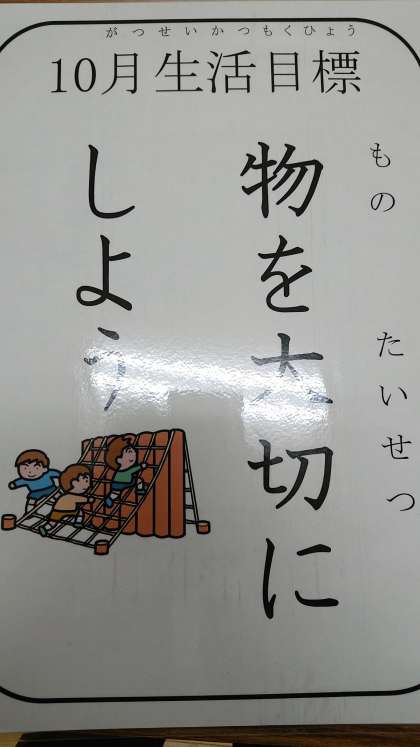 がつせいかつもくひょう
10月生活目標
もの たいせつ
物を大切に
しよう